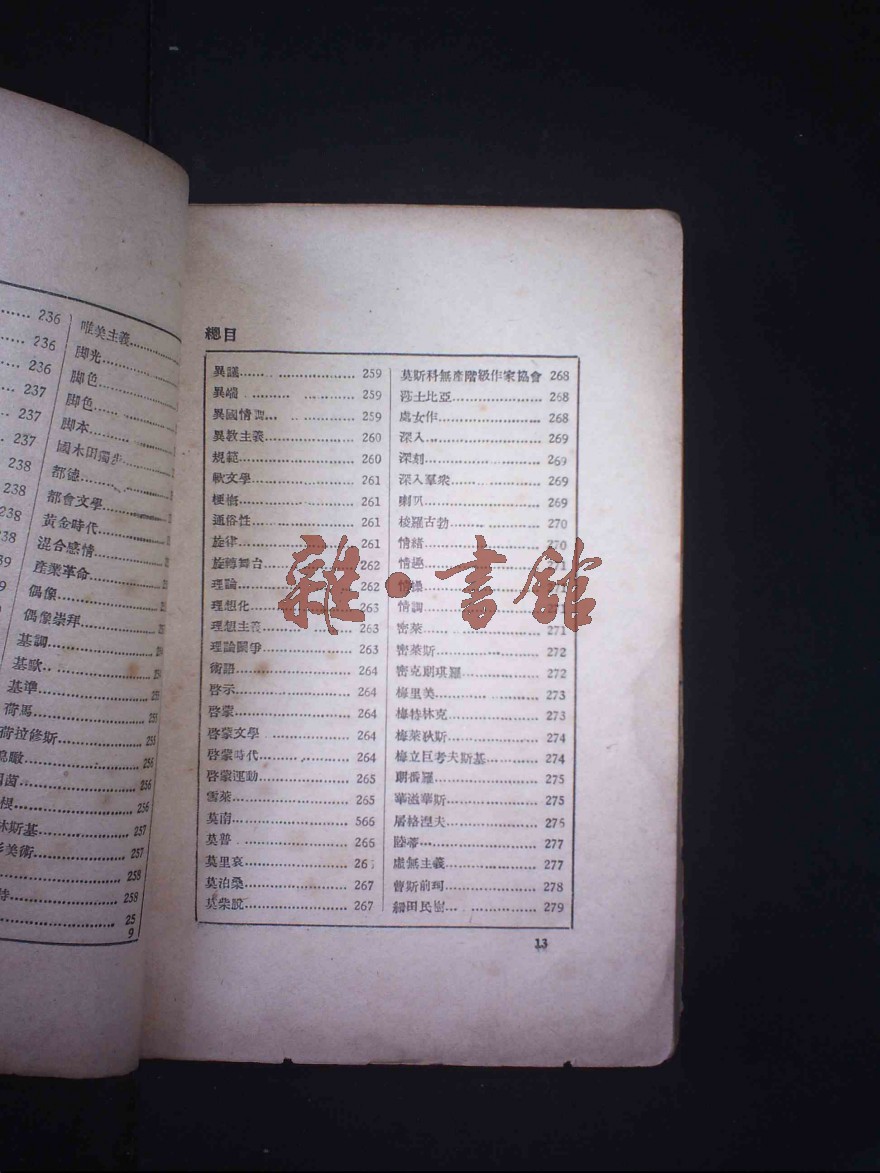 236
236
236
237
237
237
238
238
238
238
唯美主義
脚光
脚色
脚色
脚本
國木田獨步
都德
都會文學
黃金時代
混合感情
產業革命
偶像
偶像崇拜
基調
基歌
基準
荷馬 255
荷拉修斯 255
鳥瞰 256
256
根 256
林斯基 257
形美術 257
258
258
25
9
總目
異議 259
異端 259
異國情調 259
異教主義 260
規範 260
軟文學 261
梗概 261
通俗性 261
旋律 261
旋轉舞台 262
理論 262
理想化 263
理想主義 263
理論鬪爭 263
術語 264
啓示 264
啓蒙 264
啓蒙文學 264
啓蒙時代 264
啓蒙運動 265
雪萊 265
莫南 566
莫普 266
莫里哀 267
莫泊桑 267
莫柴脫 267
莫斯科無產階級作家協會 268
莎士比亞 268
處女作 268
深入 269
深刻 269
深入羣衆 269
喇叭 269
梭羅古勃 270
情緒 270
情趣 271
情操 271
情調 271
密萊 271
密萊斯 272
密克朗琪羅 272
梅里美 273
梅特林克 273
梅萊狄斯 274
梅立巨考夫斯基 274
朗番羅 275
華滋華斯 275
屠格涅夫 275
陸蒂 277
虛無主義 277
曹斯前珂 278
細田民樹 279
13
雜·書館